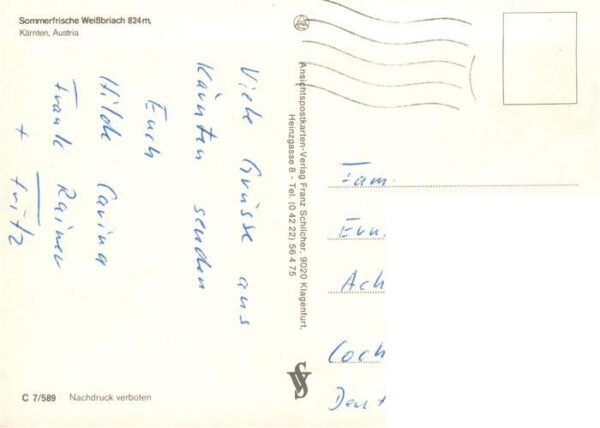 Sommerfrische Weißbriach 824 m,
Kärnten, Austria
Viele Grüsse aus
Kärnten senden
Euch
Hilde Carina
Frank Rainer
+ Fritz
Ansichtspostkarten-Verlag Franz Schilcher, 9020 Klagenfurt,
Heinzgasse 8 - Tel. (0 42 22) 56 4 75
Fam.
Ach
Coch
C 7/589 Nachdruck verboten